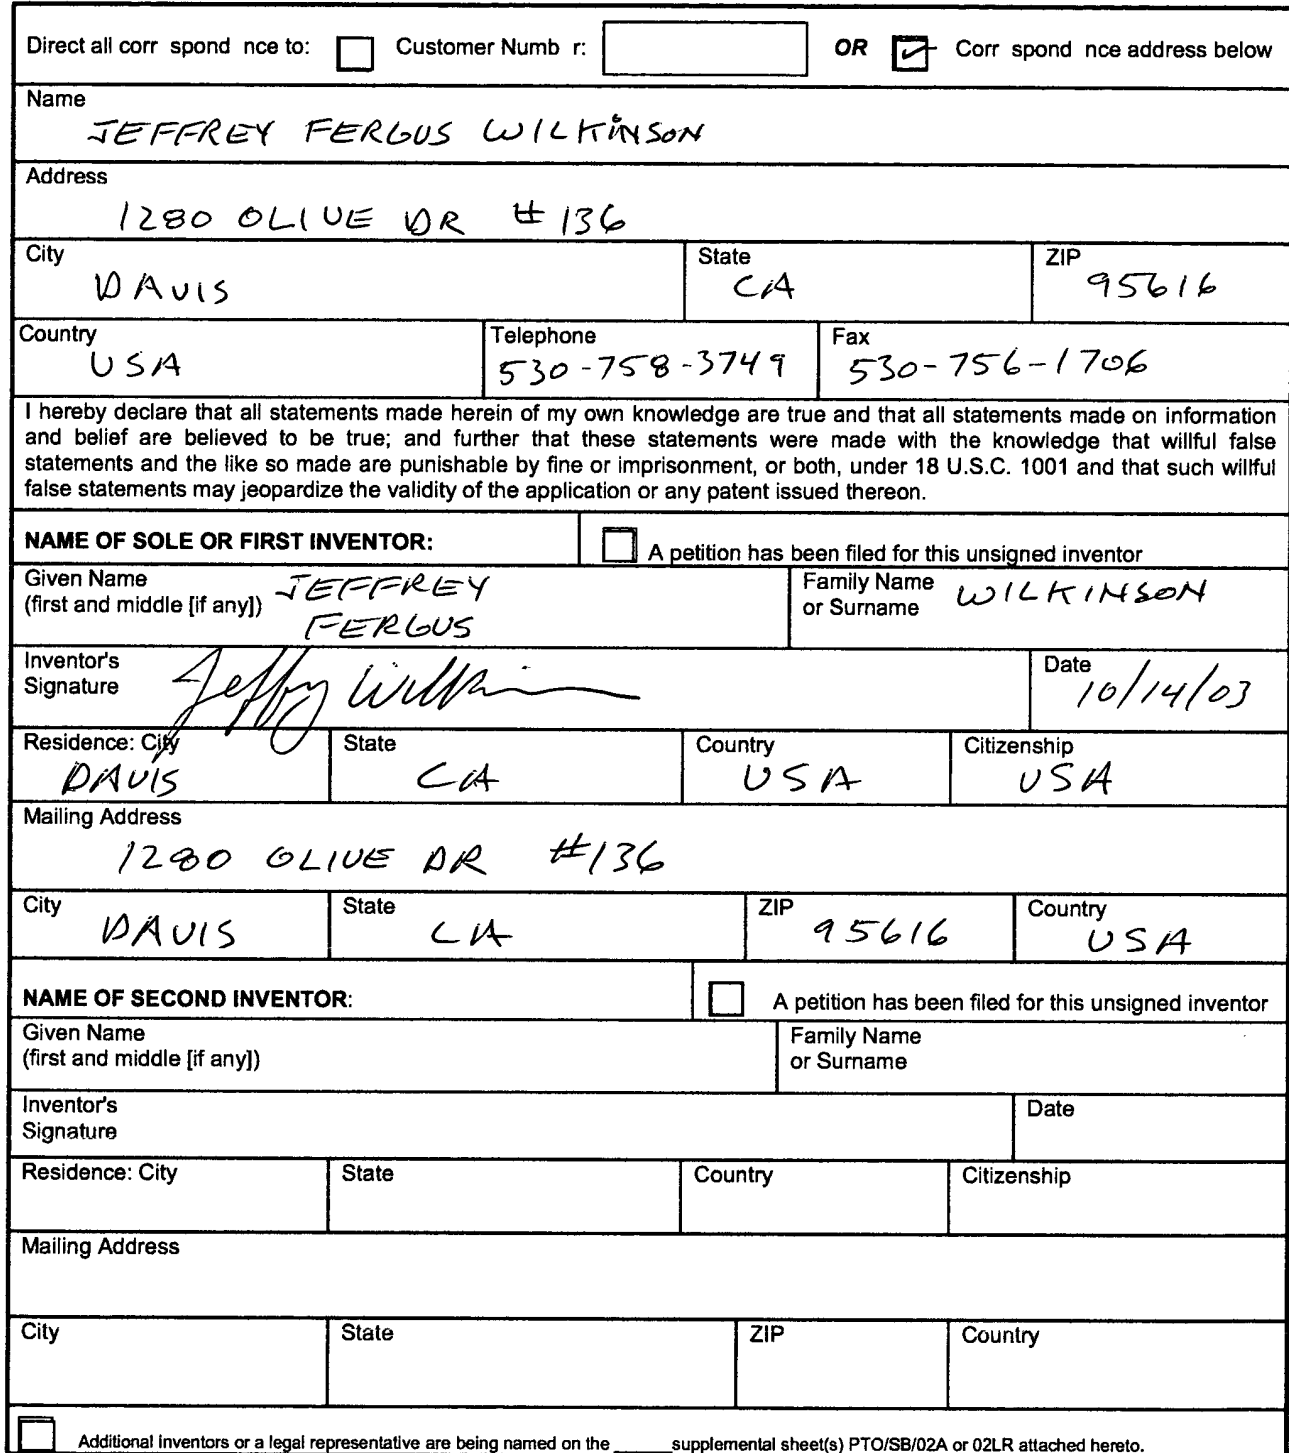 Direct all corr spond nce to: Customer Numb r: OR Corr spond nce address below
Name
JEFFREY FERGUS WILKINSON
Address
1280 OLIVE DR # 136
City State ZIP
DAVIS CA 95616
Country Telephone Fax
USA 530-758-3749 530-756-1706
I hereby declare that all statements made herein of my own knowledge are true and that all statements made on information
and belief are believed to be true; and further that these statements were made with the knowledge that willful false
statements and the like so made are punishable by fine or imprisonment, or both, under 18 U.S.C. 1001 and that such willful
false statements may jeopardize the validity of the application or any patent issued thereon.
NAME OF SOLE OR FIRST INVENTOR: A petition has been filed for this unsigned inventor
Given Name JEFFREY Family Name WILKINSON
(first and middle [if any]) FERGUS or Surname
Inventor's Date
Signature 10/14/03
Residence: City State Country Citizenship
DAVIS CA USA USA
Mailing Address
1280 OLIVE DR #136
City State ZIP Country
DAVIS CA 95616 USA
NAME OF SECOND INVENTOR: A petition has been filed for this unsigned inventor
Given Name Family Name
(first and middle [if any]) or Surname
Inventor's Date
Signature
Residence: City State Country Citizenship
Mailing Address
City State ZIP Country
Additional inventors or a legal representative are being named on the ______supplemental sheet(s) PTO/SB/02A or 02LR attached hereto.